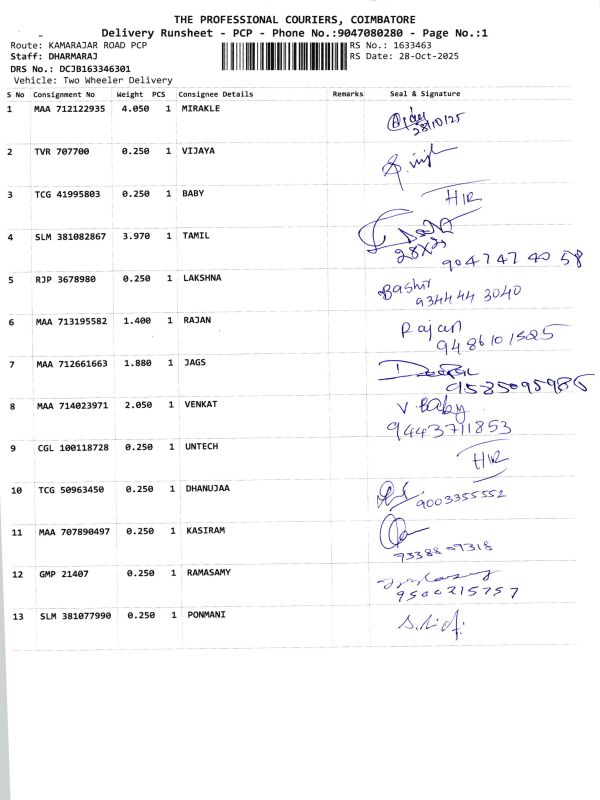 THE PROFESSIONAL COURIERS, COIMBATORE
Delivery Runsheet - PCP - Phone No.:9047080280 - Page No.:1
Route: KAMARAJAR ROAD PCP RS No.: 1633463
Staff: DHARMARAJ RS Date: 28-Oct-2025
DRS No.: DCJB163346301
Vehicle: Two Wheeler Delivery
S No Consignment No Weight PCS Consignee Details Remarks Seal & Signature
1 MAA 712122935 4.050 1 MIRAKLE
28/10/25
2 TVR 707700 0.250 1 VIJAYA
3 TCG 41995803 0.250 1 BABY
4 SLM 381082867 3.970 1 TAMIL
9047474058
5 RJP 3678980 0.250 1 LAKSHNA Bashir
9344443040
6 MAA 713195582 1.400 1 RAJAN Rajan
9486101525
7 MAA 712661663 1.880 1 JAGS
9535095985
8 MAA 714023971 2.050 1 VENKAT V Baby
9443711853
9 CGL 100118728 0.250 1 UNTECH
10 TCG 50963450 0.250 1 DHANUJAA 9003355552
11 MAA 707890497 0.250 1 KASIRAM
12 GMP 21407 0.250 1 RAMASAMY
9500215757
13 SLM 381077990 0.250 1 PONMANI